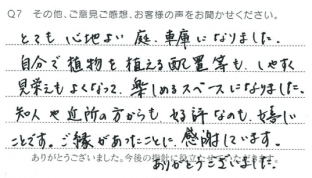 Q7 その他、ご意見ご感想、お客様の声をお聞かせください。
とても心地よい庭、車庫になりました。
自分で植物を植える配置等も、しやすく
見栄えもよくなって、楽しめるスペースになりました。
知人や近所の方からも好評なのも、嬉しい
ことです。ご縁があったことに、感謝しています。
ありがとうございました。今後の指針に役立たせていただきます。
ありがとうございました。